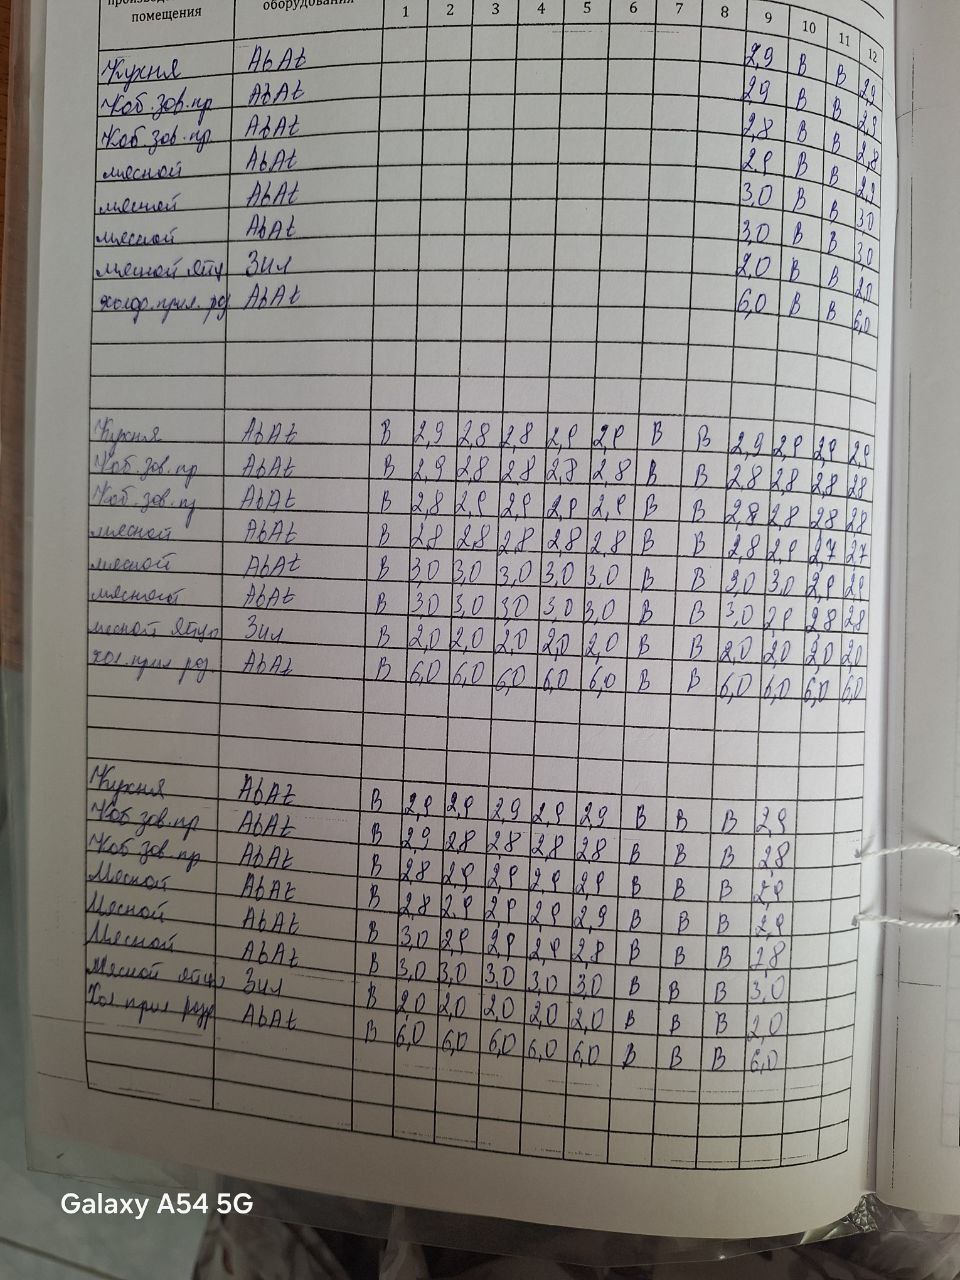 помещения оборудования 1 2 3 4 5 6 7 8 9 10 11 12
Кухня Abat 2,9 В В 2,9
Хоб. зов. пр Abat 2,9 В В 2,9
Хоб зов. пр. Abat 2,8 В В 2,8
мясной Abat 2,9 В В 2,9
мясной Abat 3,0 В В 3,0
мясной Abat 3,0 В В 3,0
мясной яйцо Зил 2,0 В В 2,0
Abat 6,0 В В 6,0
Кухня Abat В 2,9 2,8 2,8 2,9 2,9 В В 2,9 2,9 2,9 2,9
Хоб. зов. пр Abat В 2,9 2,8 2,8 2,8 2,8 В В 2,8 2,8 2,8 2,8
Хоб. зов. пр Abat В 2,8 2,9 2,9 2,9 2,9 В В 2,8 2,8 2,8 2,8
мясной Abat В 2,8 2,8 2,8 2,8 2,8 В В 2,8 2,9 2,7 2,7
мясной Abat В 3,0 3,0 3,0 3,0 3,0 В В 3,0 3,0 2,9 2,9
мясной Abat В 3,0 3,0 3,0 3,0 3,0 В В 3,0 2,9 2,8 2,8
мясной яйцо Зил В 2,0 2,0 2,0 2,0 2,0 В В 2,0 2,0 2,0 2,0
хол. прил роз. Abat В 6,0 6,0 6,0 6,0 6,0 В В 6,0 6,0 6,0 6,0
Кухня Abat В 2,9 2,9 2,9 2,9 2,9 В В В 2,9
Хоб зов. пр Abat В 2,9 2,8 2,8 2,8 2,8 В В В 2,8
Хоб зов пр Abat В 2,8 2,9 2,9 2,9 2,9 В В В 2,9
Мясной Abat В 2,8 2,9 2,9 2,9 2,9 В В В 2,9
Мясной Abat В 3,0 2,9 2,9 2,9 2,8 В В В 2,8
Мясной Abat В 3,0 3,0 3,0 3,0 3,0 В В В 3,0
Мясной яйцо Зил В 2,0 2,0 2,0 2,0 2,0 В В В 2,0
Хол прил Abat В 6,0 6,0 6,0 6,0 6,0 В В В 6,0
Galaxy A54 5G